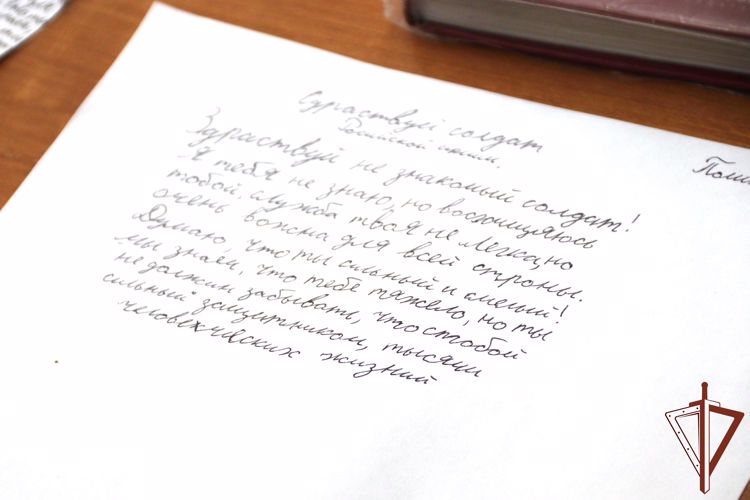 Здраствуй солдат
Российской армии.
Поли
Здраствуй не знакомый солдат!
Я тебя не знаю, но восхищяюсь
тобой, служба твоя не легка, но
очень важна для всей строны.
Думаю, что ты сильный и смелый!
Мы знаем, что тебе тяжело, но ты
не должин забывать, что стобой
сильный защитником, тысячи
человеческих жизний